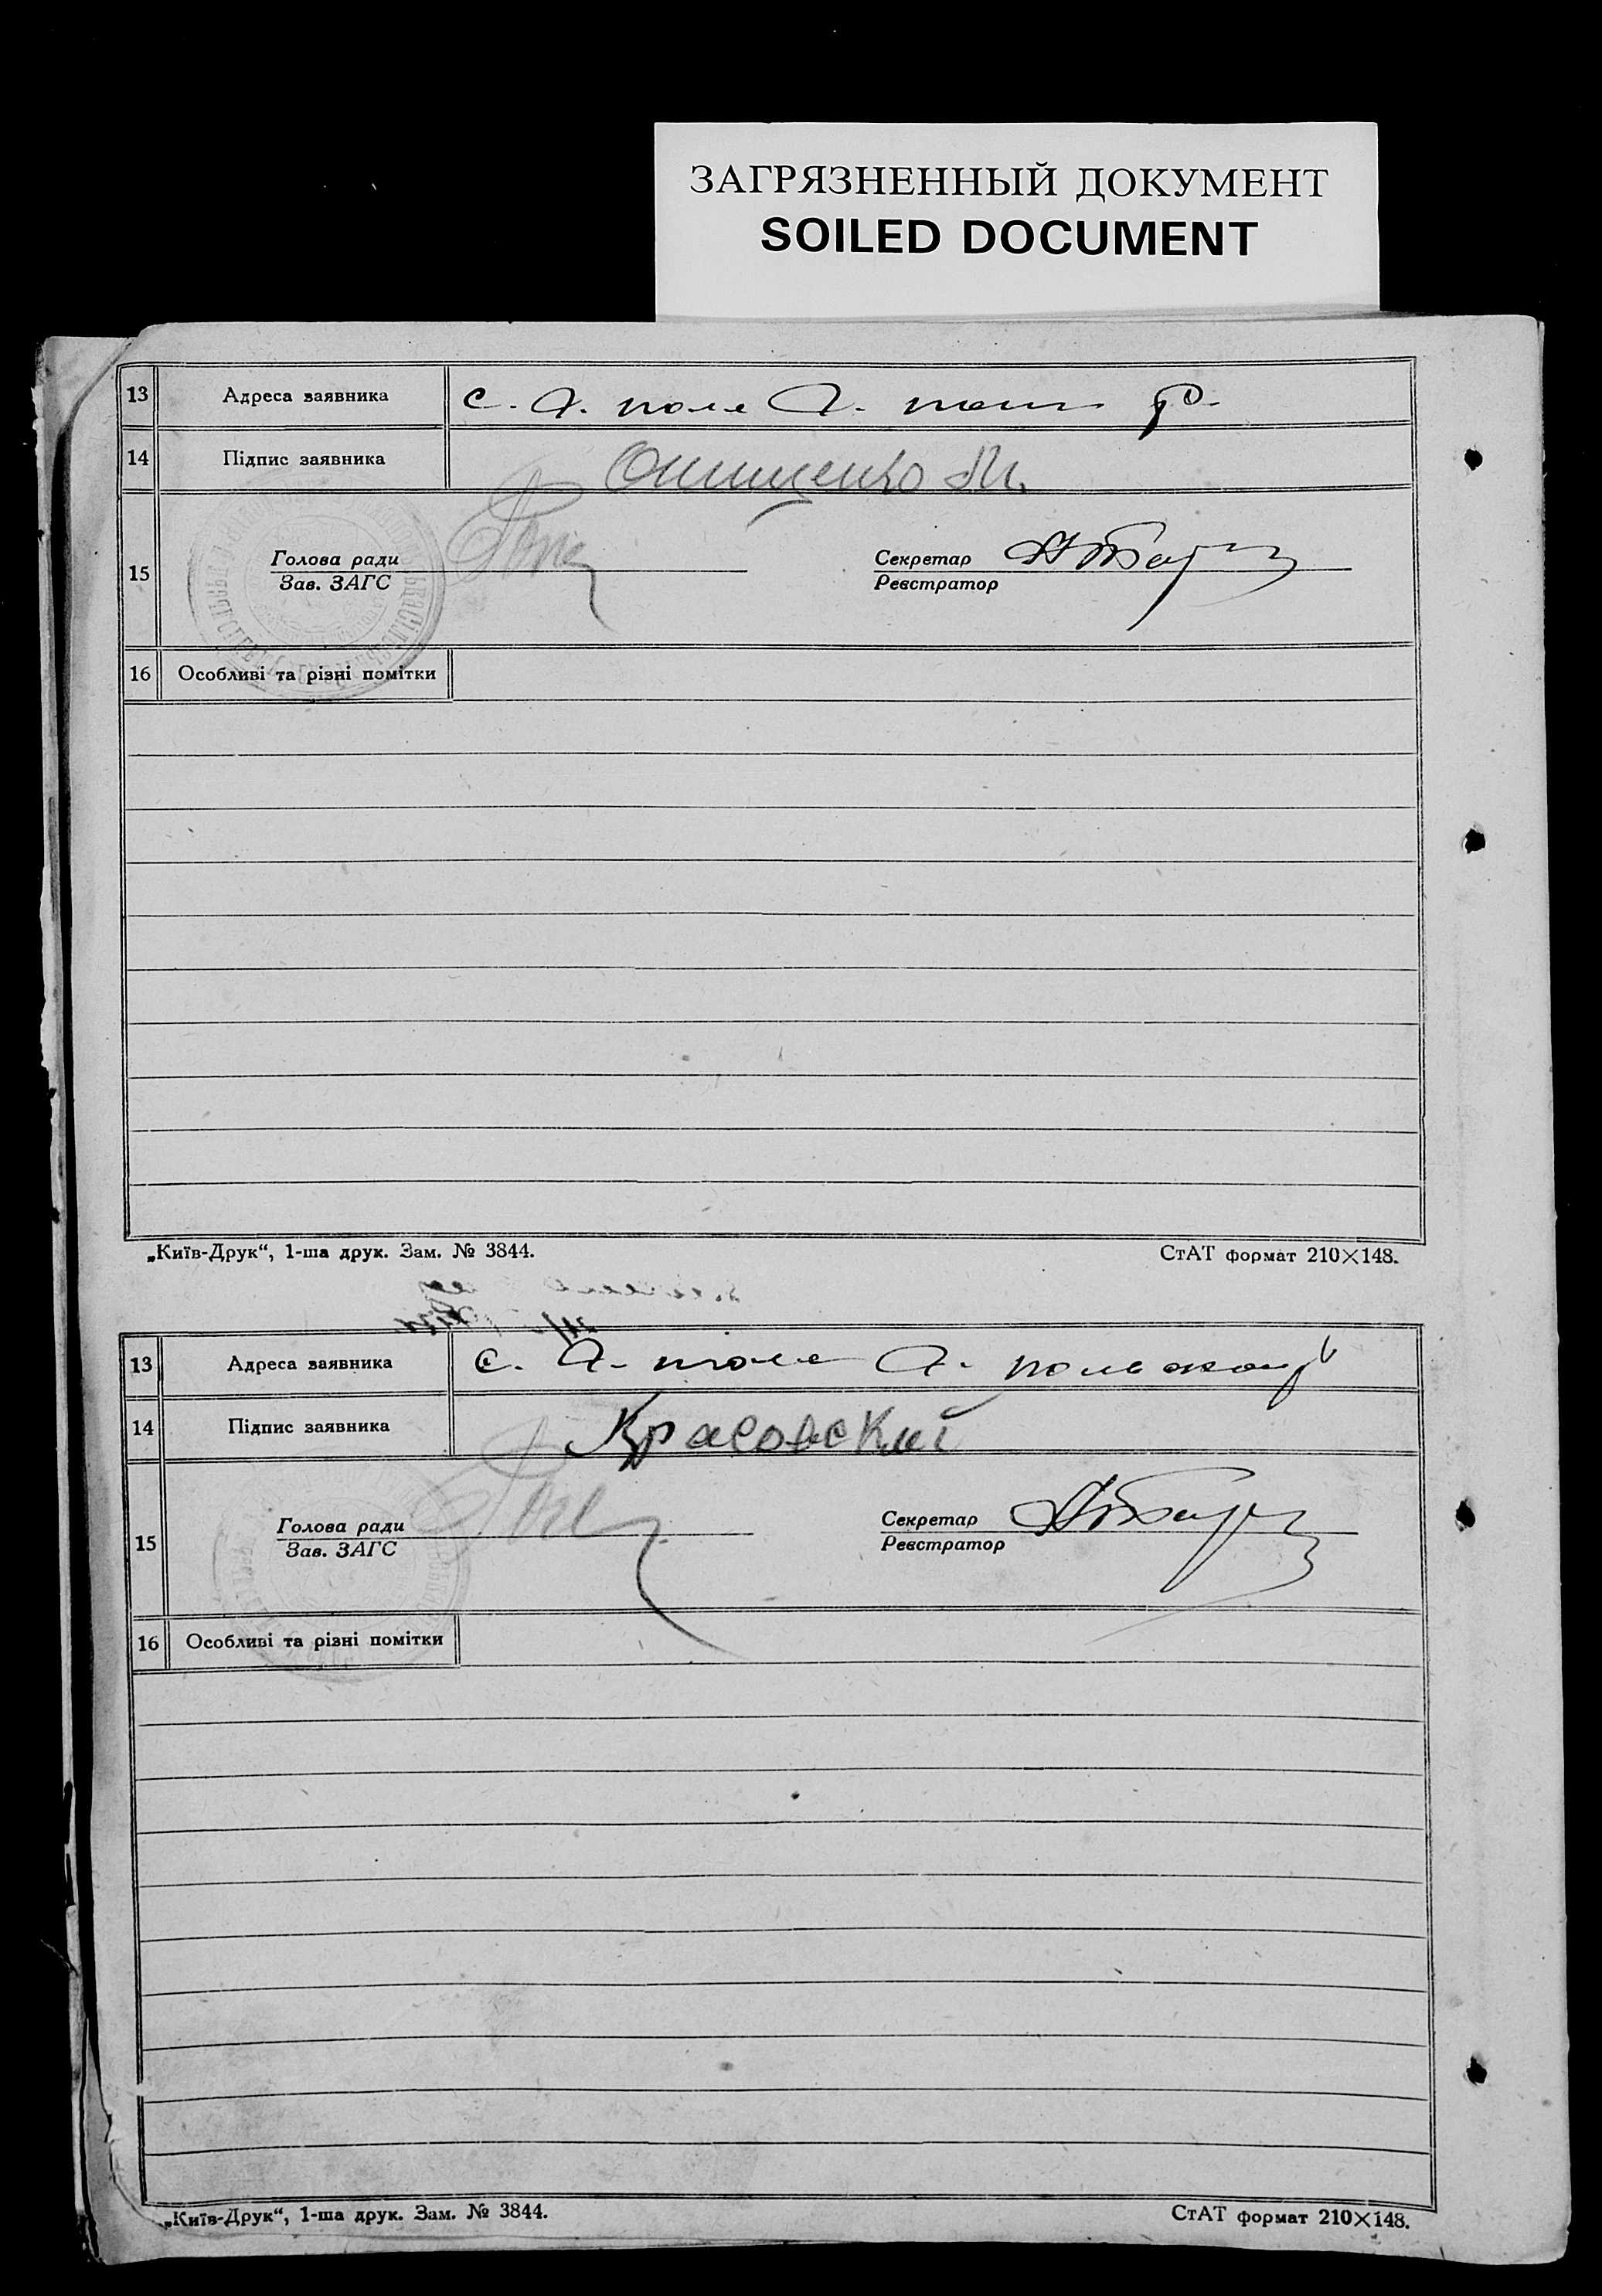 ЗАГРЯЗНЕННЫЙ ДОКУМЕНТ
SOILED DOCUMENT
13 Адреса заявника с. Я. поле Я.
14 Підпис заявника Онищенко
15 Голова ради
Зав. ЗАГС
Секретар
Реєстратор
16 Особливі та різні помітки
„Київ-Друк“, 1-ша друк. Зам. № 3844. СтАТ формат 210×148.
13 Адреса заявника с. Я. поле Я.
14 Підпис заявника Красовский
15 Голова ради
Зав. ЗАГС
Секретар
Реєстратор
16 Особливі та різні помітки
„Київ-Друк“, 1-ша друк. Зам. № 3844. СтАТ формат 210×148.